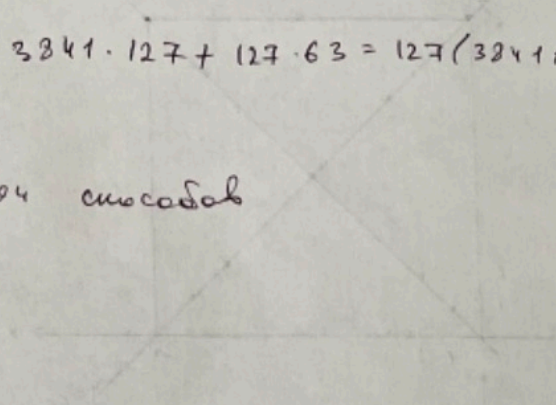 3841 · 127 + 127 · 63 = 127(3841
04 способов